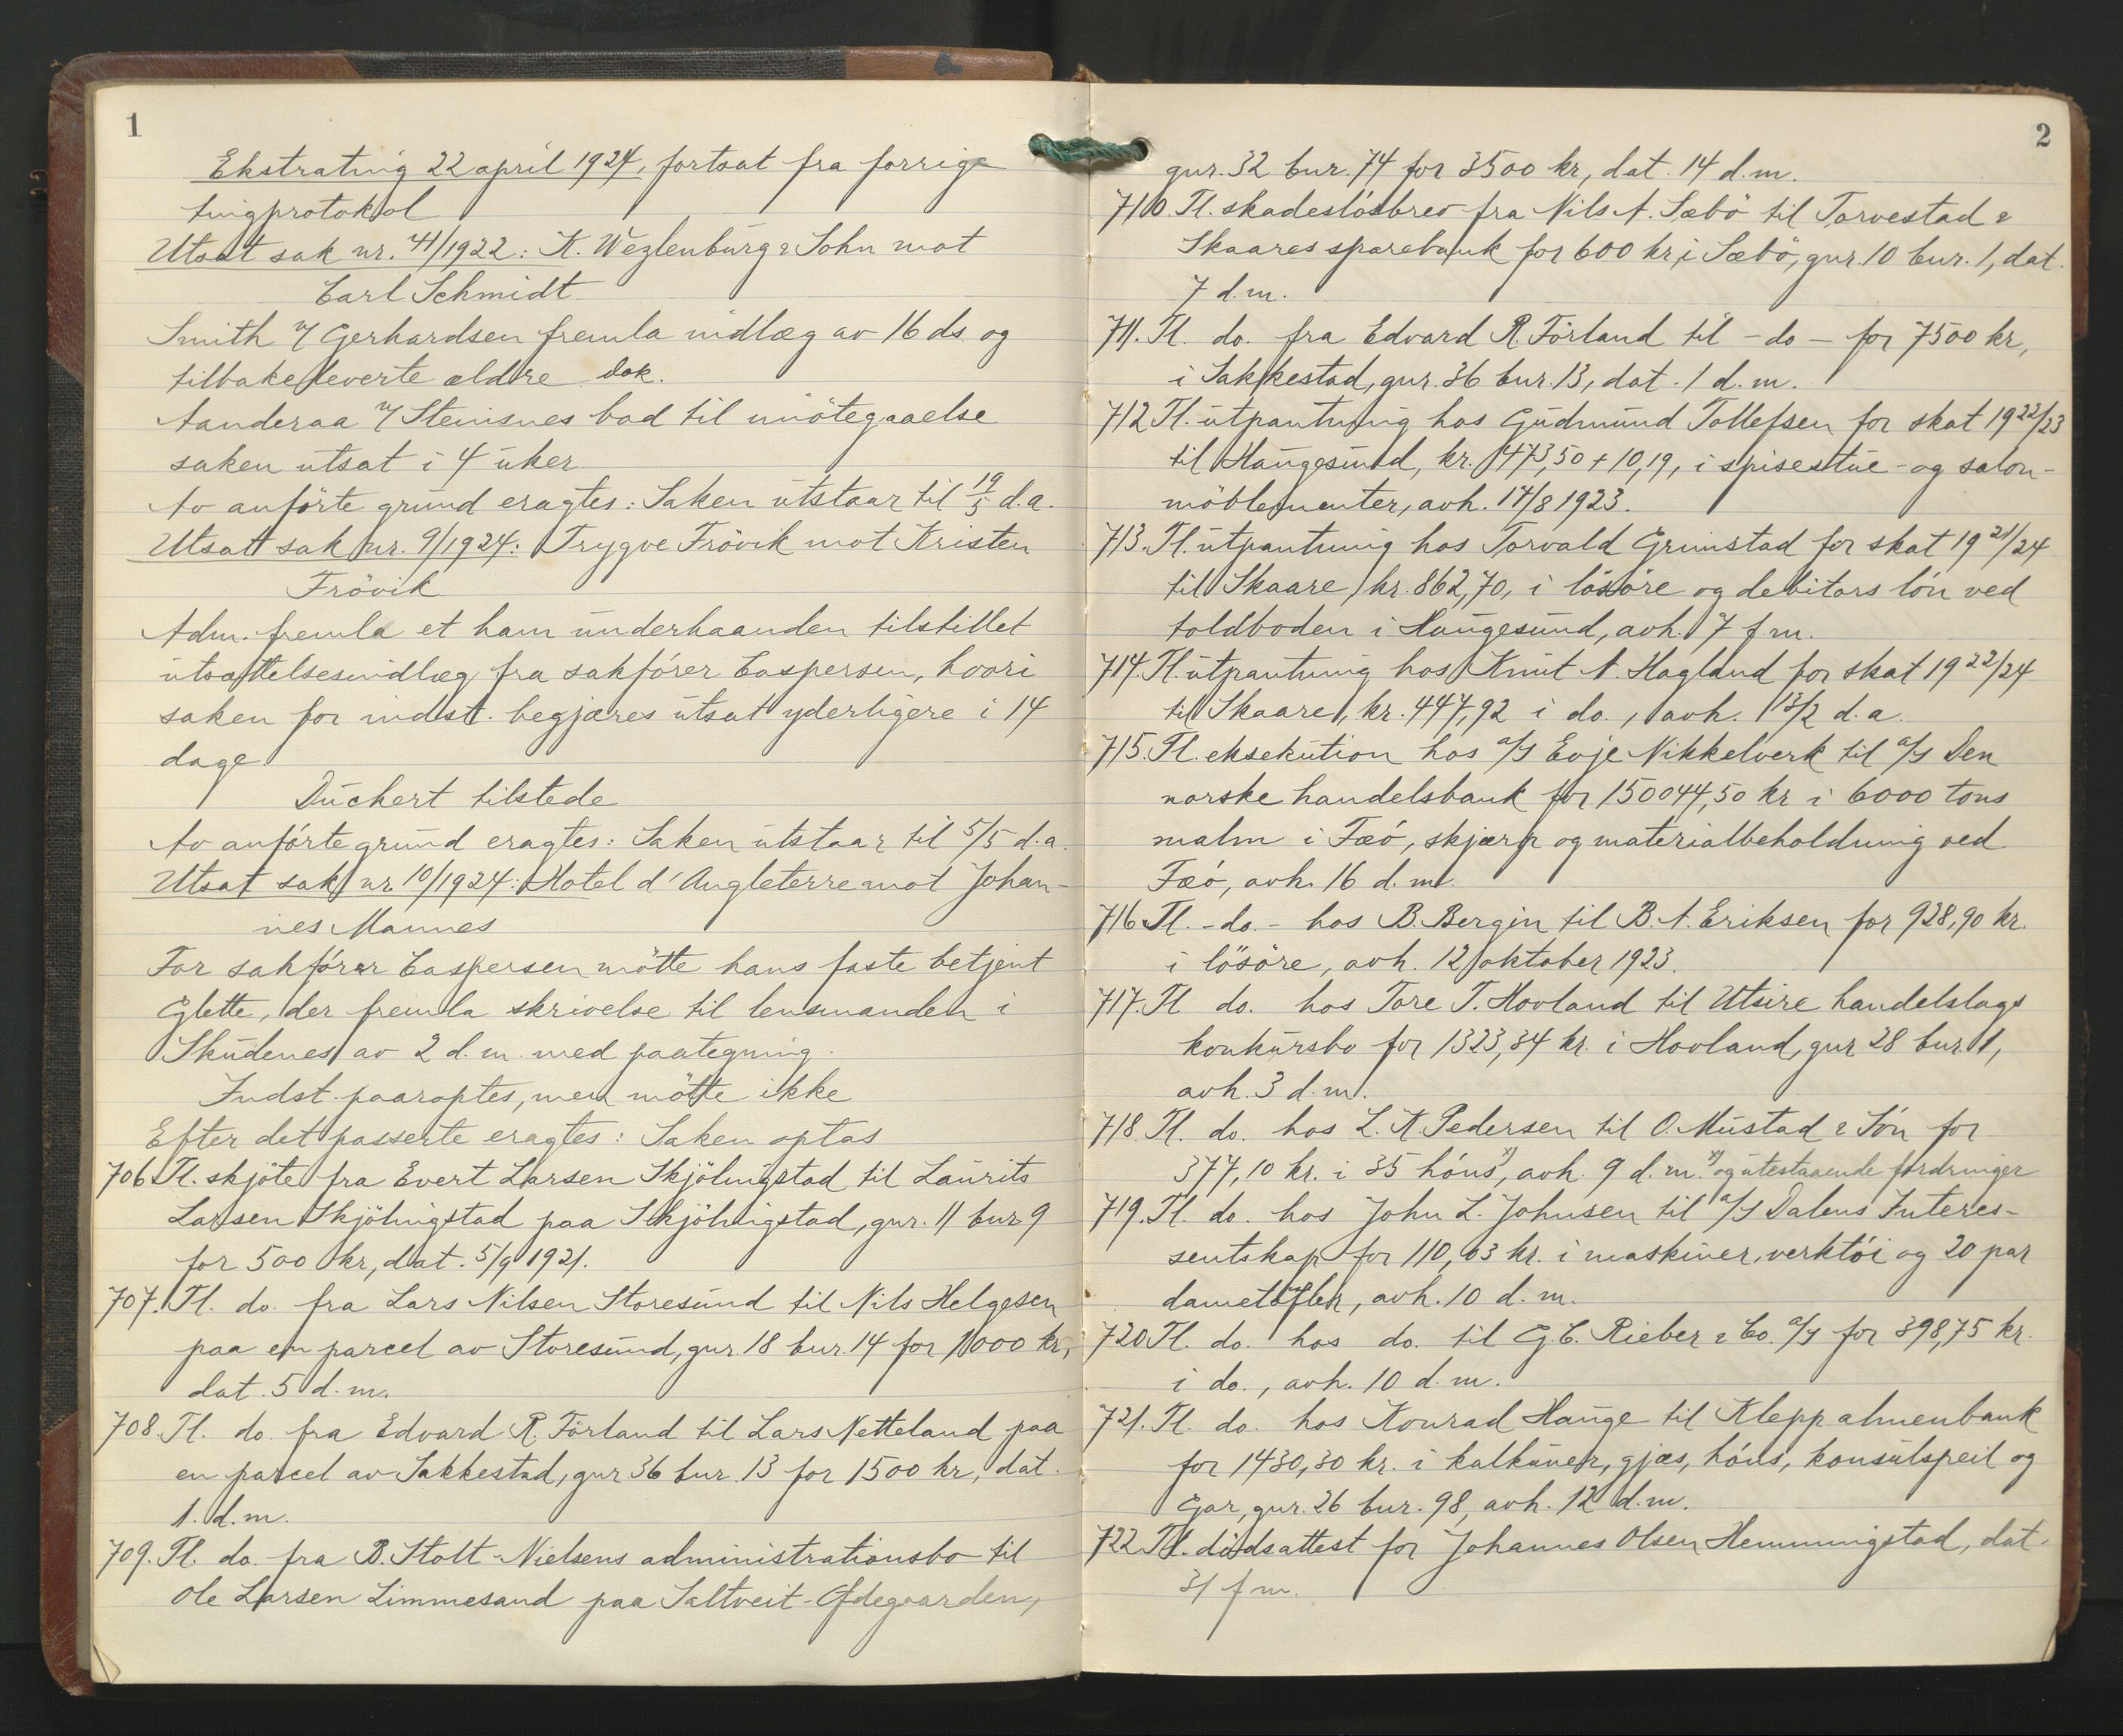 1
Ekstrating 22 april 1924, fortsat fra forrige
tingprotokol
Utsat sak nr. 41/1922: K. Wezlenburg & Sohn mot
Carl Schmidt
Smith v/ Gerhardsen fremla indlæg av 16 ds. og
tilbakeleverte ældre dok.
Aanderaa v/ Steinsnes bad til imötegaaelse
saken utsat i 4 uker
Av anförte grund eragtes: Saken utstaar til 19/5 d.a.
Utsatt sak nr. 9/1924: Trygve Frövik mot Kristen
Frövik
Adm. fremla et ham underhaanden tilstillet
utsættelsesindlæg fra sakförer Caspersen, hvori
saken for indst. begjæres utsat yderligere i 14
dage
Duckert tilstede
Av anförte grund eragtes: Saken utstaar til 5/5 d.a.
Utsat sak nr 10/1924: Hotel d'Angleterre mot Johan-
nes Mannes
For sakförer Caspersen mötte hans faste betjent
Glette, der fremla skrivelse til lensmanden i
Skudenes av 2 d.m. med paategning.
Indst. paaroptes, men mötte ikke
Efter det passerte eragtes: Saken optas
706 Tl. skjöte fra Evert Larsen Skjölingstad til Laurits
Larsen Skjölingstad paa Skjölingstad, gnr. 11 bnr 9
for 500 kr, dat. 5/9 1921.
707. Tl. do. fra Lars Nilsen Storesund til Nils Helgesen
paa en parcel av Storesund, gnr. 18 bnr. 14 for 1000 kr,
dat. 5 d.m.
708. Tl. do. fra Edvard R. Förland til Lars Netteland paa
en parcel av Sakkestad, gnr 36 bnr. 13 for 1500 kr, dat.
1. d.m.
709. Tl. do. fra B. Stolt-Nielsens administrationsbo til
Ole Larsen Limmesand paa Saltveit-Ödegaarden,
2
gnr. 32 bnr. 74 for 3500 kr, dat. 14 d.m.
710. Tl. skadeslösbrev fra Nils A. Sæbö til Torvestad &
Skaares sparebank for 600 kr, i Sæbö, gnr. 10 bnr. 1, dat.
7 d.m.
711. Tl. do. fra Edvard R. Förland til - do - for 7500 kr,
i Sakkestad, gnr. 36 bnr. 13, dat. 1 d.m.
712 Tl. utpantning hos Gudmund Tollefsen for skat 1922/23
til Haugesund, kr. 1473,50 + 10,19, i spisestue- og salon-
möblementer, avh. 14/8 1923.
713. Tl. utpantning hos Torvald Grimstad for skat 1921/24
til Skaare, kr. 862,70, i lösöre og debitors lön ved
toldboden i Haugesund, avh. 7 f.m.
714. Tl. utpantning hos Knut A. Hagland for skat 1922/24
til Skaare, kr. 447,92 i do., avh. 13/2 d.a.
715. Tl. eksekution hos a/s Evje Nikkelverk til a/s Den
norske handelsbank for 150044,50 kr i 6000 tons
malm i Fæö, skjærp og materialbeholdning ved
Fæö, avh. 16 d.m.
716 Tl. - do. - hos B. Bergin til B.A. Eriksen for 928,90 kr.
i lösöre, avh. 12 oktober 1923.
717. Tl do. hos Tore T. Hovland til Utsire handelslags
konkursbo for 1323,34 kr. i Hovland, gnr 28 bnr. 1,
avh. 3 d.m.
718. Tl. do. hos L. A. Pedersen til O. Mustad & Sön for
377,10 kr. i 35 höns x), avh. 9 d.m. x) og utestaaende fordringer
719. Tl. do. hos John L. Johnsen til a/s Dalens Interes-
sentskap for 110,03 kr. i maskiner, verktöi og 20 par
dametöfler, avh. 10 d.m.
720 Tl. do. hos do. til G.C. Rieber & Co. a/s for 398,75 kr.
i do., avh. 10 d.m.
721. Tl. do. hos Konrad Hauge til Klepp almenbank
for 1430,30 kr. i kalkuner, gjæs, höns, konsulspeil og
Gar, gnr. 26 bnr. 98, avh. 12 d.m.
722 Tl. dödsattest for Johannes Olsen Hemmingstad, dat.
31 f m.